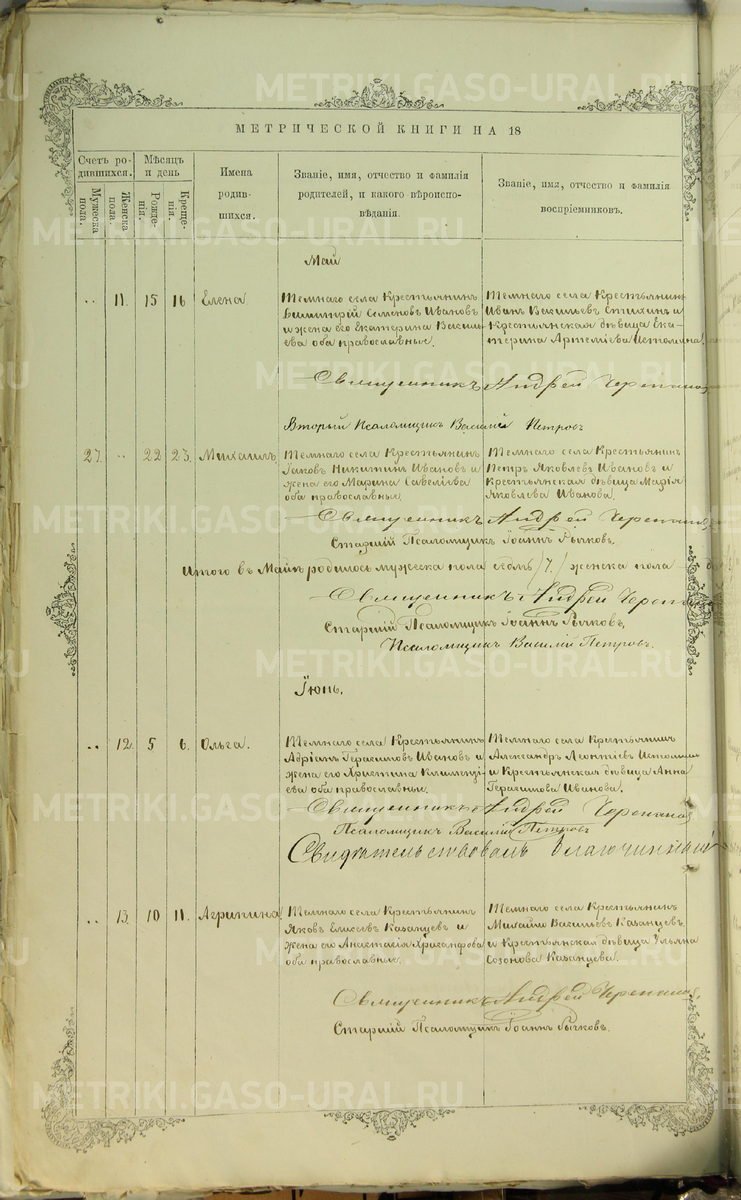 МЕТРИЧЕСКОЙ КНИГИ НА 18
Счетъ ро-
дившихся.
Мужеска
пола.
Женска
пола.
Мѣсяцъ
и день
Рожде-
нія.
Креще-
нія.
Имена
родив-
шихся.
Званіе, имя, отчество и фамилія
родителей, и какого вѣроиспо-
вѣданія.
Званіе, имя, отчество и фамилія
воспріемниковъ.
Май
11. 15 16 Елена
Темнаго села Крестьянинъ
Димитрій Семеновъ Ивановъ
и жена его Екатерина Василь-
ева оба православные.
Темнаго села Крестьянинъ
Иванъ Васильевъ
и
Крестьянская дѣвица Ека-
терина Артеміева Истомина.
Священникъ Андрей Черепановъ
Вторый Псаломщикъ Василій Петровъ
27. 22 23. Михаилъ
Темнаго села Крестьянинъ
Іаковъ Никитинъ Ивановъ и
жена его Марина Савеліева
оба православные.
Темнаго села Крестьянинъ
Петръ Яковлевъ Ивановъ и
Крестьянская дѣвица Марія
Яковлева Иванова.
Священникъ Андрей Черепановъ
Старшій Псаломщикъ Іоаннъ Рычковъ.
Итого въ Маѣ родилось мужеска пола семь /7./ женска пола
Священникъ Андрей Черепановъ
Старшій Псаломщикъ Іоаннъ Рычковъ,
Псаломщикъ Василій Петровъ.
Іюнь.
12. 5 6. Ольга.
Темнаго села Крестьянинъ
Адріанъ Герасимовъ Ивановъ и
жена его Христина Климентi-
ева оба православные.
Темнаго села Крестьянинъ
Александръ Леонтіевъ Истоминъ
и Крестьянская дѣвица Анна
Герасимова Иванова.
Священникъ Андрей Черепановъ
Псаломщикъ Василій Петровъ
Свидѣтельствовалъ благочинный
13. 10 11. Агрипина
Темнаго села Крестьянинъ
Яковъ Елисеевъ Казанцевъ и
жена его Анастасія Хрисанфова
оба православные.
Темнаго села Крестьянинъ
Михаилъ Васильевъ Казанцевъ
и Крестьянская дѣвица Ульяна
Созонова Казанцева.
Священникъ Андрей Черепановъ,
Старшій Псаломщикъ Іоаннъ Рычковъ.
METRIKI.GASO-URAL.RU
METRIKI.GASO-URAL.RU
METRIKI.GASO-URAL.RU
METRIKI.GASO-URAL.RU
METRIKI.GASO-URAL.RU
METRIKI.GASO-URAL.RU
METRIKI.GASO-URAL.RU
METRIKI.GASO-URAL.RU